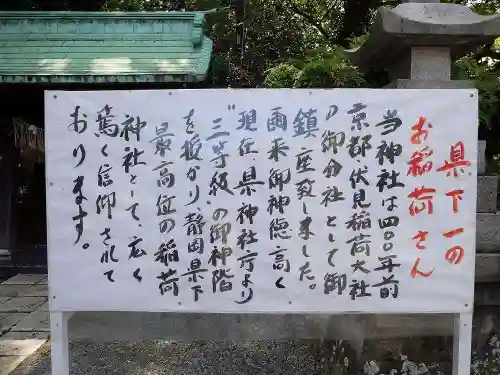 県下一の
お稲荷さん
当神社は四〇〇年前
京都伏見稲荷大社
の御分社として御
鎮座致しました。
爾来御神隠高く
現在、県神社庁より
"三等級"の御神階
を授かり静岡県下
最高位の稲荷
神社とて、広く
篤く信仰されて
おります。